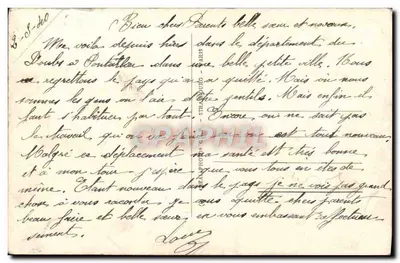 2-8-40
Bien chers Parents belle soeur et neveux
Me voila depuis hier dans le département du
Doubs à Pontarlier dans une belle petite ville. Nous
regrettons le pays qu'on a quitté. Mais où nous
sommes les gens on l'air d'être gentils. Mais enfin il
faut s'habituer par tout. Encore, on ne sait pas
le travail qu'on est tout nouveau.
Malgré ce déplacement ma santé est très bonne
et à mon tour j'espère que vous tous en êtes de
même. Etant nouveau dans le pays je ne vois pas grand
chose à vous raconter je vous quitte chers parents
beau frère et belle soeur en vous embrassant affectueu
sement.
Louis